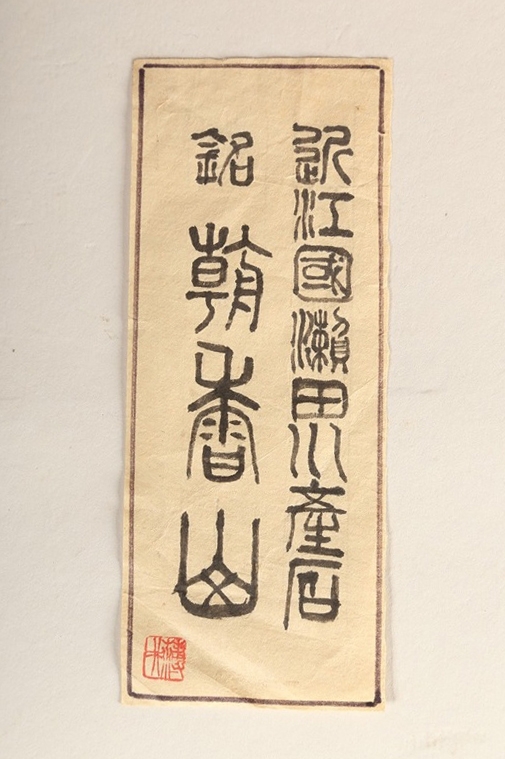 近江國瀨田川産石
銘 朝香山